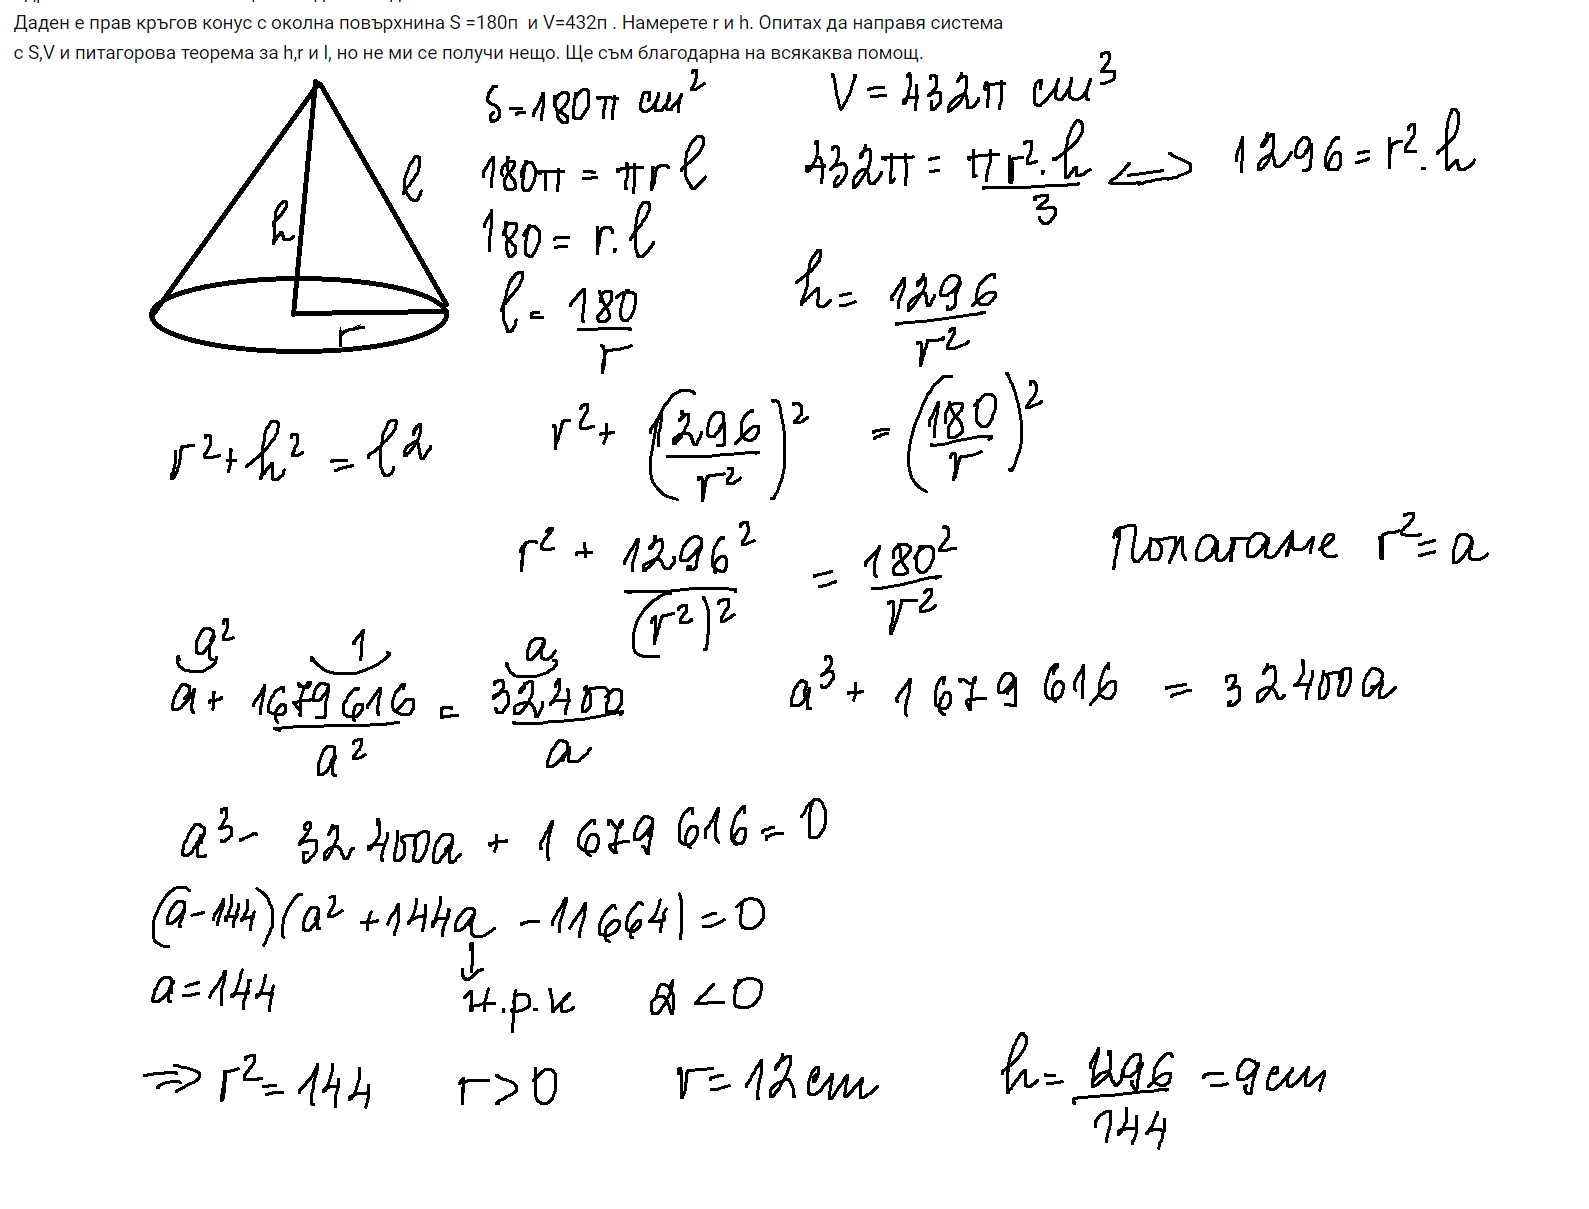 Даден е прав кръгов конус с околна повърхнина S =180п и V=432п . Намерете r и h. Опитах да направя система
с S,V и питагорова теорема за h,r и l, но не ми се получи нещо. Ще съм благодарна на всякаква помощ.
S=180π cm² V = 432π cm³
180π = πrl 432π = πr².h/3 <=> 1296 = r².h
180 = r.l
l = 180/r h = 1296/r²
h l r
r²+h² = l² r²+ (1296/r²)² = (180/r)²
r² + 1296²/(r²)² = 180²/r² Полагаме r²=a
a² 1 a
a + 1679616/a² = 32400/a a³ + 1 679 616 = 32400a
a³- 32400a + 1 679 616 = 0
(a-144)(a² +144a -11664) = 0
a=144 н.р.к a<0
=> r²=144 r>0 r=12cm h= 1296/144 = 9cm